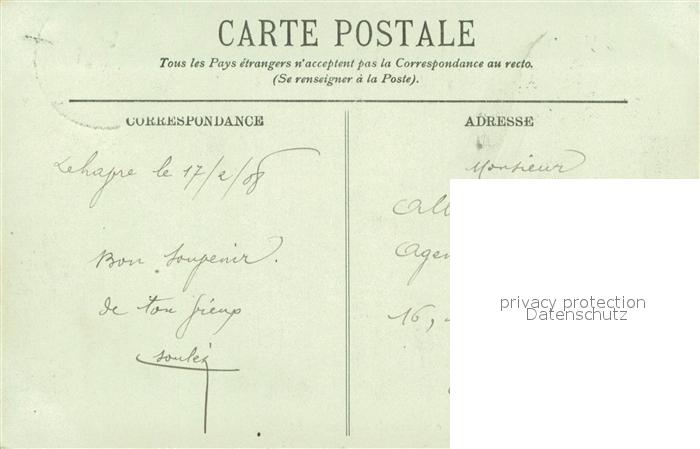 CARTE POSTALE
Tous les Pays étrangers n'acceptent pas la Correspondance au recto.
(Se renseigner à la Poste).
CORRESPONDANCE
ADRESSE
Lehavre le 17/2/08
Monsieur
Bon Souvenir.
de ton vieux
16,
privacy protection
Datenschutz